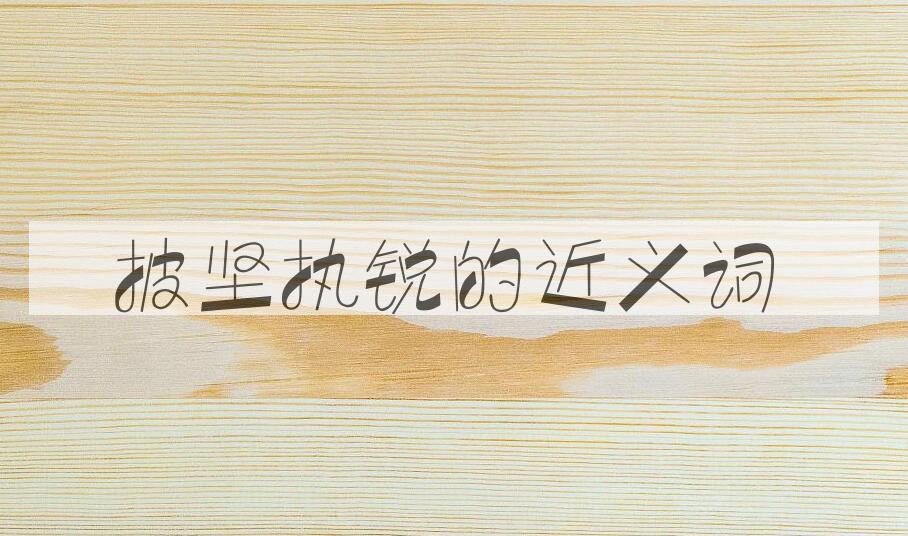 披坚执锐的近义词